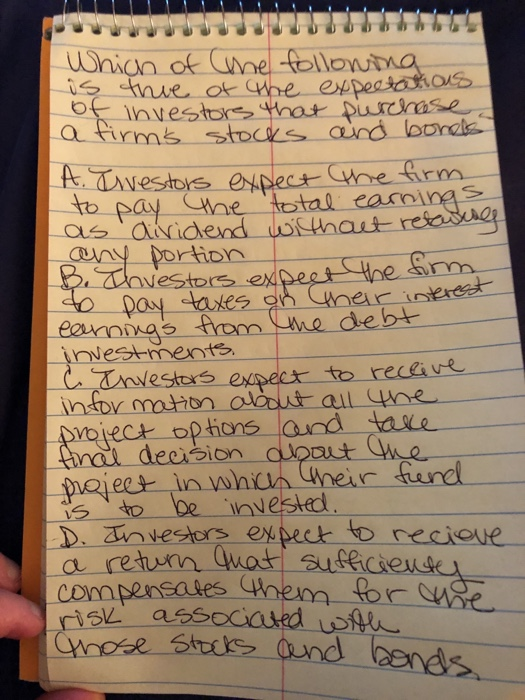 Which of the following
is true of the expectations
of investors that purchase
a firm's stocks and bonds
A. Investors expect the firm
to pay the total earnings
as dividend without retaining
any portion
B. Investors expect the firm
to pay taxes on their interest
earnings from the debt
investments.
C. Investors expect to receive
information about all the
project options and take
final decision about the
project in which their fund
is to be invested.
D. Investors expect to recieve
a return that sufficiently
compensates them for the
risk associated with
those stocks and bonds.